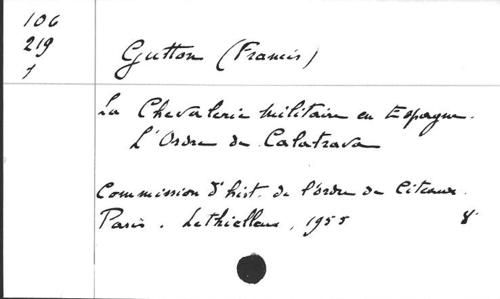 106
219
1
Gutton (Francis)
La Chevalerie militaire en Espagne.
L'Ordre de Calatrava
Commission d'hist. de l'ordre de Citeaux.
Paris. Lethielleux, 1955 8°